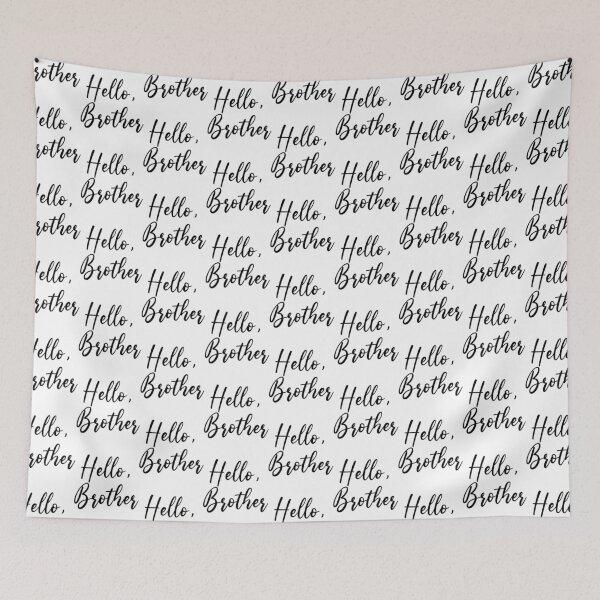 rother Hello, Brother Hello, Brother Hello, Brother Hello, Broth
ello, Brother Hello, Brother Hello, Brother Hello, Brother Hell
rother Hello, Brother Hello, Brother Hello, Brother Hello, Broth
ello, Brother Hello, Brother Hello, Brother Hello, Brother Hell
rother Hello, Brother Hello, Brother Hello, Brother Hello, Broth
ello, Brother Hello, Brother Hello, Brother Hello, Brother Hell
rother Hello, Brother Hello, Brother Hello, Brother Hello, Broth
ello, Brother Hello, Brother Hello, Brother Hello, Brother Hell
rother Hello, Brother Hello, Brother Hello, Brother Hello, Broth
ello, Brother Hello, Brother Hello, Brother Hello, Brother Hell
rother Hello, Brother Hello, Brother Hello, Brother Hello, Broth
ello, Brother Hello, Brother Hello, Brother Hello, Brother Hell